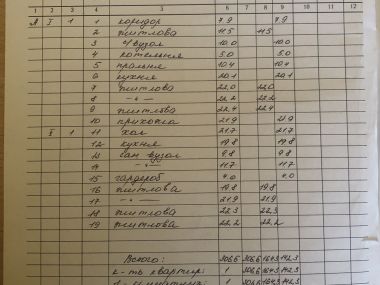 1 2 3 4 5 6 7 8 9 10 11 12
А I 1 1 коридор 7.9 7.9
2 житлова 11.5 11.5
3 с/вузол 10.0 10.0
4 котельня 5.0 5.0
5 пральня 10.4 10.4
6 кухня 20.1 20.1
7 житлова 22.0 22.0
8 -"- 22.2 22.2
9 житлова 22.4 22.4
10 прихожа 21.9 21.9
II 1 11 хол 21.7 21.7
12 кухня 19.8 19.8
13 сан вузол 9.8 9.8
14 -"- 11.7 11.7
15 гардероб 4.0 4.0
16 житлова 19.8 19.8
17 -"- 21.9 21.9
18 житлова 22.3 22.3
19 житлова 22.2 22.2
Всього: 306,6 306,6 164.3 142.3
к-ть квартир: 1 306,6 164.3 142.3
1